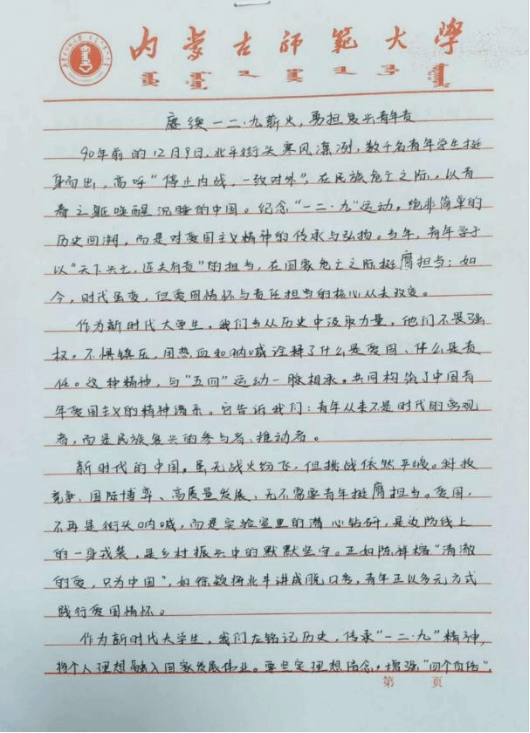 内蒙古师范大学
赓续一二·九薪火，勇担复兴青年责
90年前的12月9日，北平街头寒风凛冽，数千名青年学生挺
身而出，高呼“停止内战，一致对外”，在民族危亡之际，以青
春之躯唤醒沉睡的中国。纪念“一二·九”运动，绝非简单的
历史回溯，而是对爱国主义精神的传承与弘扬。当年，青年学子
以“天下兴亡，匹夫有责”的担当，在国家危亡之际挺膺担当；如
今，时代虽变，但爱国情怀与责任担当的核心从未改变。
作为新时代大学生，我们当从历史中汲取力量，他们不畏强
权，不惧镇压，用热血和呐喊诠释了什么是爱国、什么是责
任。这种精神，与“五四”运动一脉相承，共同构筑了中国青
年爱国主义的精神谱系。它告诉我们：青年从来不是时代的旁观
者，而是民族复兴的参与者、推动者。
新时代的中国，虽无战火纷飞，但挑战依然严峻。科技
竞争、国际博弈、高质量发展，无不需要青年挺膺担当。爱国，
不再是街头呐喊，而是实验室里的潜心钻研，是边防线上
的一身戎装，是乡村振兴中的默默坚守。正如陈祥榕“清澈
的爱，只为中国”，如徐毅将北斗讲成脱口秀，青年正以多元方式
践行爱国情怀。
作为新时代大学生，我们应铭记历史，传承“一二·九”精神，
将个人理想融入国家发展伟业。要坚定理想信念，增强“四个自信”，
第 页